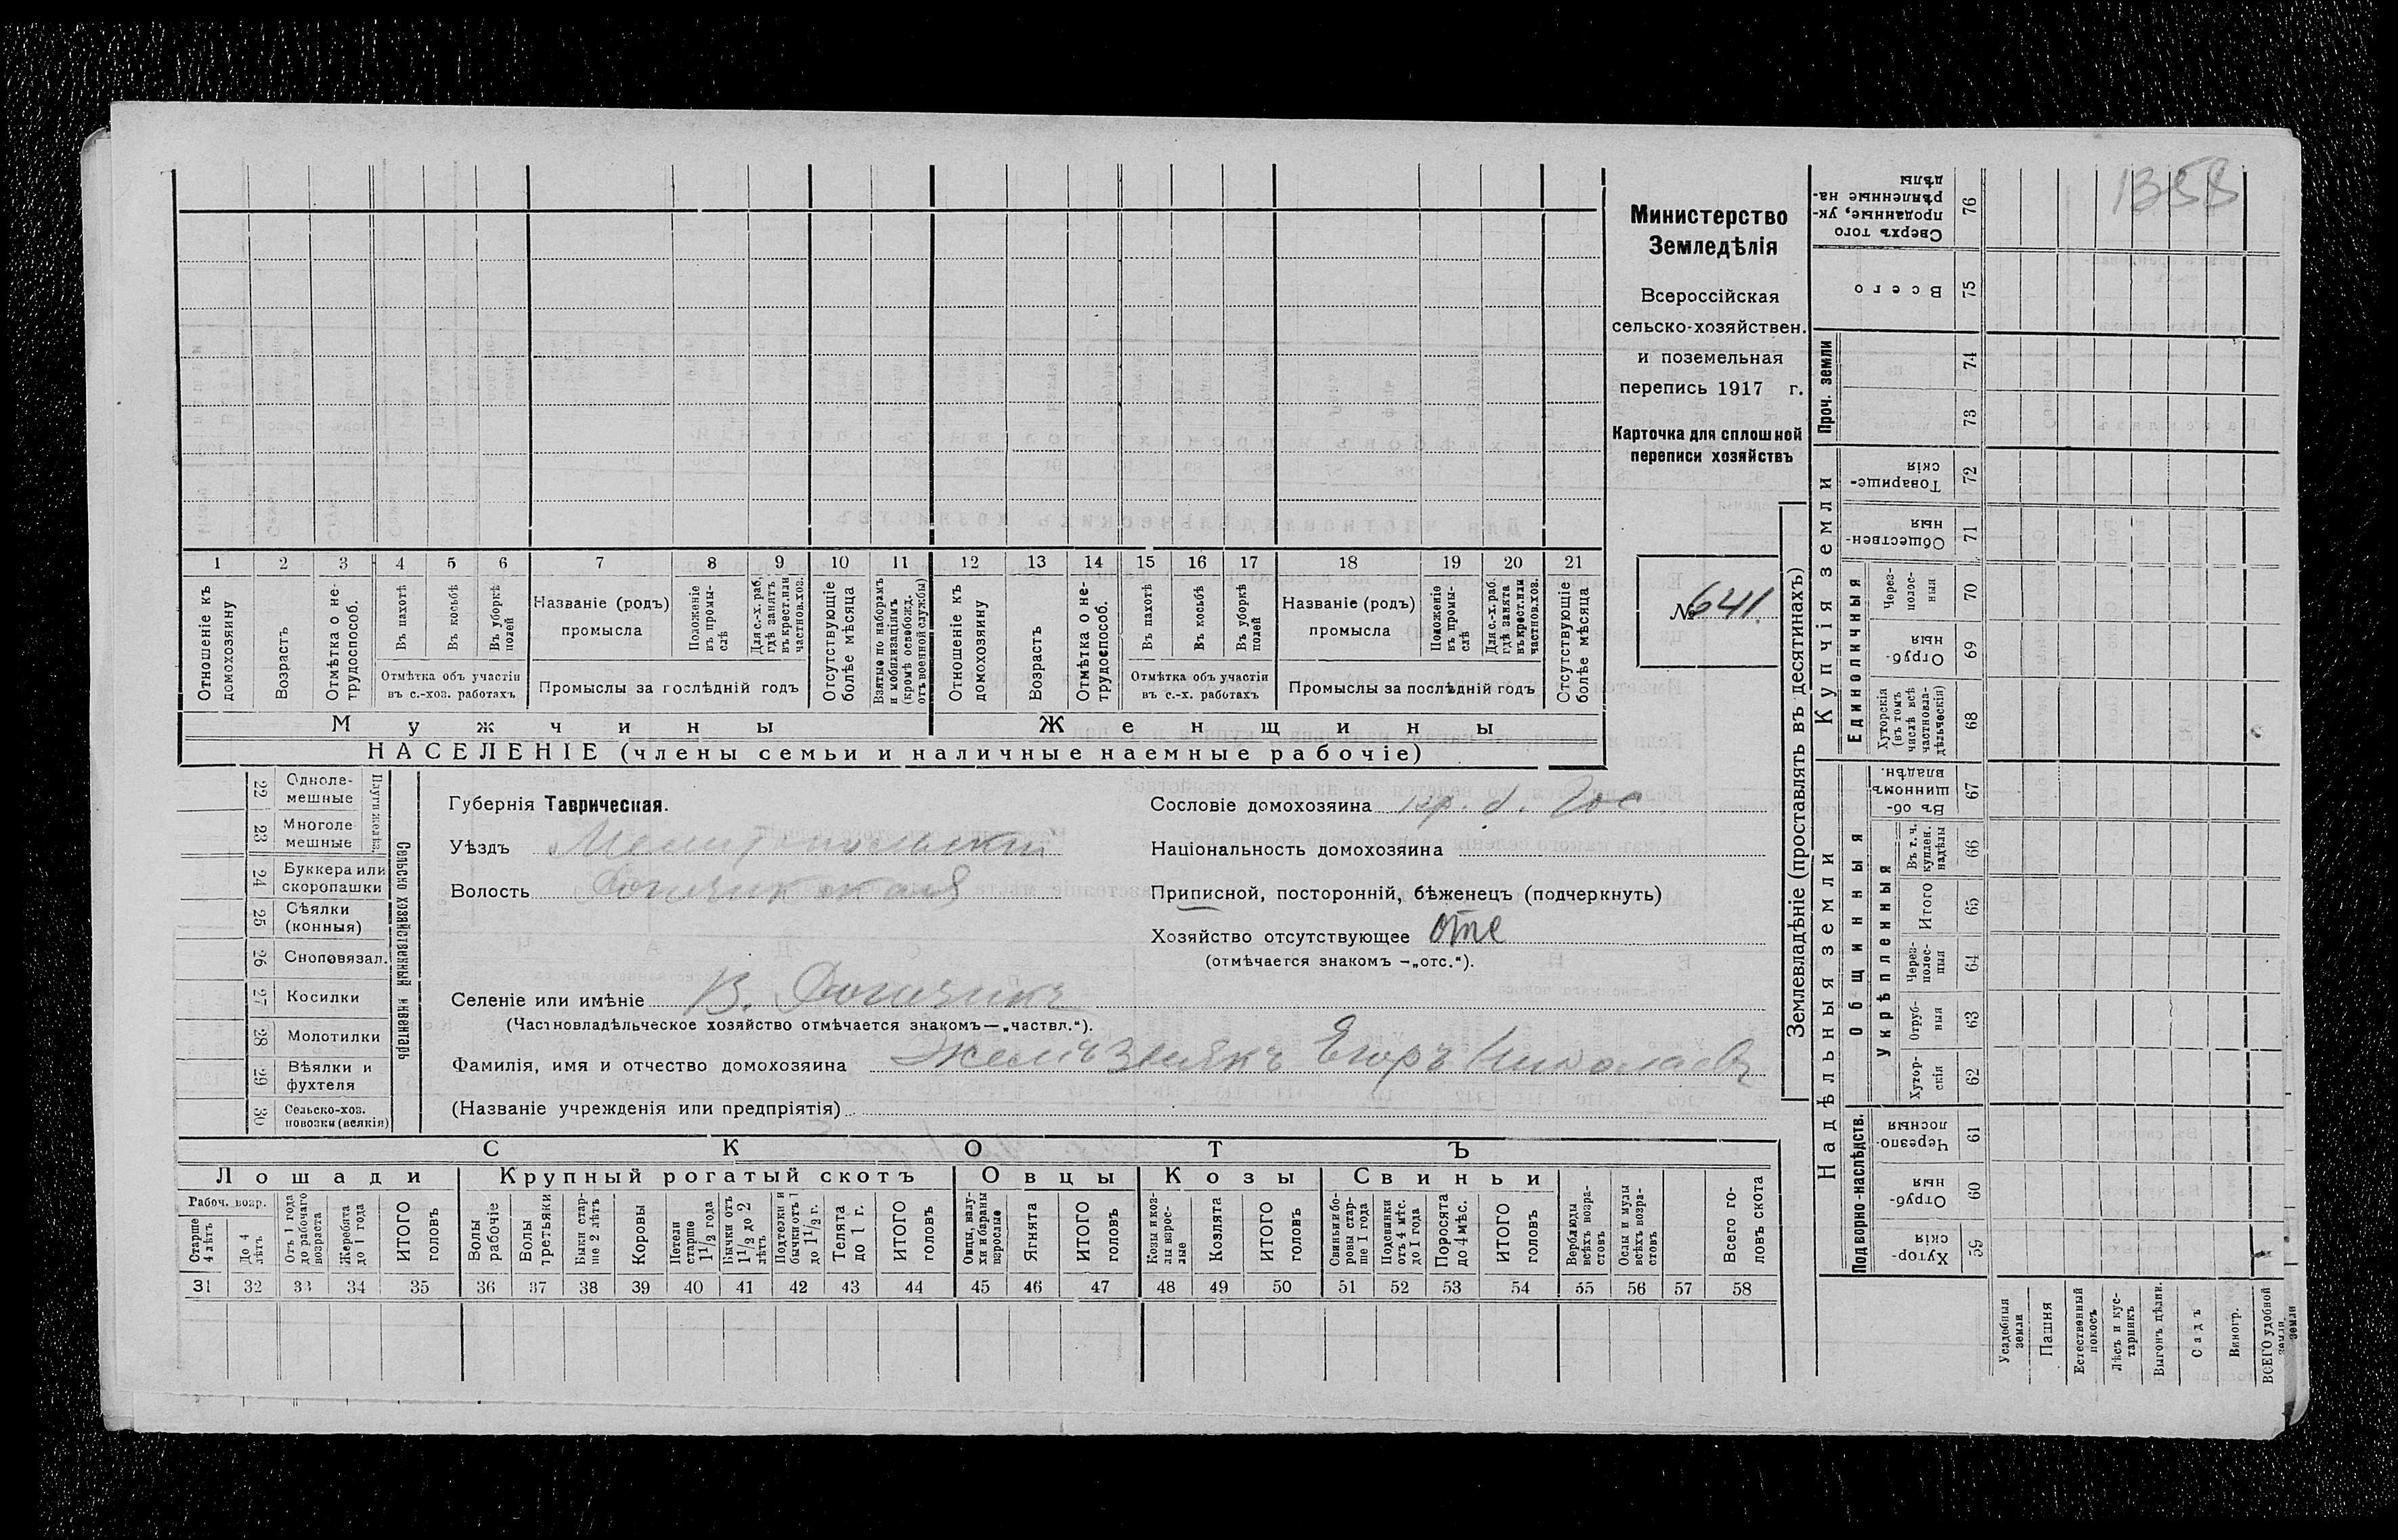 1358
Министерство
Земледѣлія
Всероссійская
сельско-хозяйствен.
и поземельная
перепись 1917 г.
Карточка для сплошной
переписи хозяйствъ
№ 641.
1 2 3 4 5 6 7 8 9 10 11 12 13 14 15 16 17 18 19 20 21
Отношеніе къ домохозяину
Возрастъ
Отмѣтка о не-трудоспособ.
Въ пахотѣ
Въ косьбѣ
Въ уборкѣ полей
Отмѣтка объ участіи
въ с.-хоз. работахъ
Названіе (родъ)
промысла
Положеніе въ промы-слѣ
Для с.-х. раб. гдѣ занятъ въ крест. или частнов. хоз.
Промыслы за послѣдній годъ
Отсутствующіе болѣе мѣсяца
Взятые по наборамъ и мобилизаціямъ (кромѣ освобожд. отъ военной службы)
Отношеніе къ домохозяину
Возрастъ
Отмѣтка о не-трудоспособ.
Въ пахотѣ
Въ косьбѣ
Въ уборкѣ полей
Отмѣтка объ участіи
въ с.-х. работахъ
Названіе (родъ)
промысла
Положеніе въ промы-слѣ
Для с.-х. раб. гдѣ занята въ крест. или частнов. хоз.
Промыслы за послѣдній годъ
Отсутствующіе болѣе мѣсяца
Мужчины
Женщины
НАСЕЛЕНІЕ (члены семьи и наличные наемные рабочіе)
Сельско хозяйственный инвентарь
Плуги желѣз.
22 Одноле-мешные
23 Многоле мешные
24 Буккера или скоропашки
25 Сѣялки (конныя)
26 Сноповязал.
27 Косилки
28 Молотилки
29 Вѣялки и фухтеля
30 Сельско-хоз. повозки (всякія)
Губернія Таврическая.
Уѣздъ Мелитопольскій
Волость Рогачикская
Селеніе или имѣніе В. Рогачикъ
(Частновладѣльческое хозяйство отмѣчается знакомъ—„частвл.“).
Фамилія, имя и отчество домохозяина Желѣзнякъ Егоръ Николаевъ
(Названіе учрежденія или предпріятія)
Сословіе домохозяина кр. б. Гос
Національность домохозяина
Приписной, посторонній, бѣженецъ (подчеркнуть)
Хозяйство отсутствующее отс
(отмѣчается знакомъ —„отс.“).
СКОТЪ
Лошади
Крупный рогатый скотъ
Овцы
Козы
Свиньи
Рабоч. возр.
Старше 4 лѣтъ
До 4 лѣтъ
Отъ 1 года до рабочаго возраста
Жеребята до 1 года
ИТОГО головъ
Волы рабочіе
Волы третьяки
Быки стар-ше 2 лѣтъ
Коровы
Нетели старше 1½ года
Бычки отъ 1½ до 2 лѣтъ
Подтелки и бычки отъ 1 до 1½ г.
Телята до 1 г.
ИТОГО головъ
Овцы, валу-хи и бараны взрослые
Ягнята
ИТОГО головъ
Козы и коз-лы взрос-лые
Козлята
ИТОГО головъ
Свиньи и бо-ровы стар-ше 1 года
Подсвинки отъ 4 мѣс. до 1 года
Поросята до 4 мѣс.
ИТОГО головъ
Верблюды всѣхъ возра-стовъ
Ослы и мулы всѣхъ возра-стовъ
Всего го-ловъ скота
31 32 33 34 35 36 37 38 39 40 41 42 43 44 45 46 47 48 49 50 51 52 53 54 55 56 57 58
Землевладѣніе (проставлять въ десятинахъ)
Купчія земли
Надѣльныя земли
Проч. земли
Единоличныя
Общинныя
Укрѣпленныя
Подворно-наслѣдств.
76 Сверхъ того проданные, ук-рѣпленные на-дѣлы
75 Всего
74
73
72 Товарище-скія
71 Обществен-ныя
70 Через-полос-ныя
69 Отруб-ныя
68 Хуторскія (въ томъ числѣ всѣ частновла-дѣльческія)
67 Въ об-щинномъ владѣн.
66 Въ т. ч. куплен. надѣлы
65 Итого
64 Через-полос-ныя
63 Отруб-ныя
62 Хутор-скія
61 Черезпо-лосныя
60 Отруб-ныя
59 Хутор-скія
Усадебныя земли
Пашня
Естественный покосъ
Лѣсъ и кус-тарникъ
Выгонъ дѣлян.
Садъ
Виногр.
ВСЕГО удобной земли